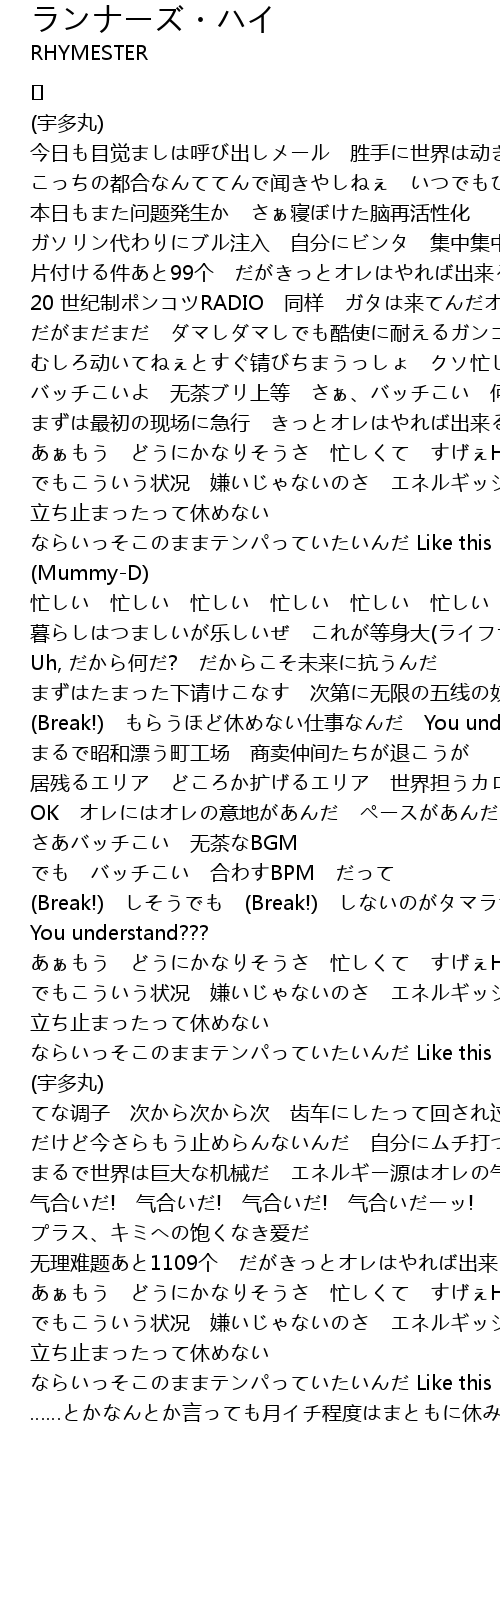 ランナーズ・ハイ
RHYMESTER
[]
(宇多丸)
今日も目覚ましは呼び出しメール　胜手に世界は动き
こっちの都合なんててんで闻きやしねぇ　いつでもひ
本日もまた问题発生か　さぁ寝ぼけた脳再活性化
ガソリン代わりにブル注入　自分にビンタ　集中集中
片付ける件あと99个　だがきっとオレはやれば出来る
20 世纪制ポンコツRADIO　同样　ガタは来てんだオ
だがまだまだ　ダマしダマしでも酷使に耐えるガンコ
むしろ动いてねぇとすぐ锖びちまうっしょ　クソ忙し
バッチこいよ　无茶ブリ上等　さぁ、バッチこい　何
まずは最初の现场に急行　きっとオレはやれば出来る
あぁもう　どうにかなりそうさ　忙しくて　すげぇH
でもこういう状况　嫌いじゃないのさ　エネルギッシ
立ち止まったって休めない
ならいっそこのままテンパっていたいんだ Like this
(Mummy-D)
忙しい　忙しい　忙しい　忙しい　忙しい　忙しい
暮らしはつましいが乐しいぜ　これが等身大(ライフサ
Uh, だから何だ?　だからこそ未来に抗うんだ
まずはたまった下请けこなす　次第に无限の五线の奴
(Break!)　もらうほど休めない仕事なんだ　You und
まるで昭和漂う町工场　商卖仲间たちが退こうが
居残るエリア　どころか扩げるエリア　世界担うカロ
OK　オレにはオレの意地があんだ　ペースがあんだ
さあバッチこい　无茶なBGM
でも　バッチこい　合わすBPM　だって
(Break!)　しそうでも　(Break!)　しないのがタマラ
You understand???
あぁもう　どうにかなりそうさ　忙しくて　すげぇH
でもこういう状况　嫌いじゃないのさ　エネルギッシ
立ち止まったって休めない
ならいっそこのままテンパっていたいんだ Like this
(宇多丸)
てな调子　次から次から次　齿车にしたって回され过
だけど今さらもう止めらんないんだ　自分にムチ打つ
まるで世界は巨大な机械だ　エネルギー源はオレの气
气合いだ!　气合いだ!　气合いだ!　气合いだーッ!
プラス、キミへの饱くなき爱だ
无理难题あと1109个　だがきっとオレはやれば出来
あぁもう　どうにかなりそうさ　忙しくて　すげぇH
でもこういう状况　嫌いじゃないのさ　エネルギッシ
立ち止まったって休めない
ならいっそこのままテンパっていたいんだ Like this
……とかなんとか言っても月イチ程度はまともに休み